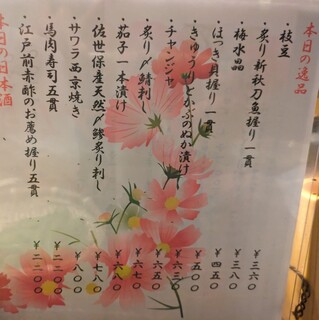 本日の逸品
・枝豆 ¥三六〇
・炙り新秋刀魚握り一貫 ¥三八〇
・梅水晶 ¥四五〇
・ほっき貝握り一貫 ¥五〇〇
・きゅうりとかぶのぬか漬け ¥六三〇
・チャンジャ ¥六五〇
・炙り〆鯖刺し ¥六七〇
・茄子一本漬け ¥六八〇
・佐世保産天然〆鯵炙り刺し ¥七八〇
・サワラ西京焼き ¥八〇〇
・馬肉寿司五貫 ¥二二〇〇
・江戸前赤酢のお薦め握り五貫 ¥二二〇〇
本日の日本酒